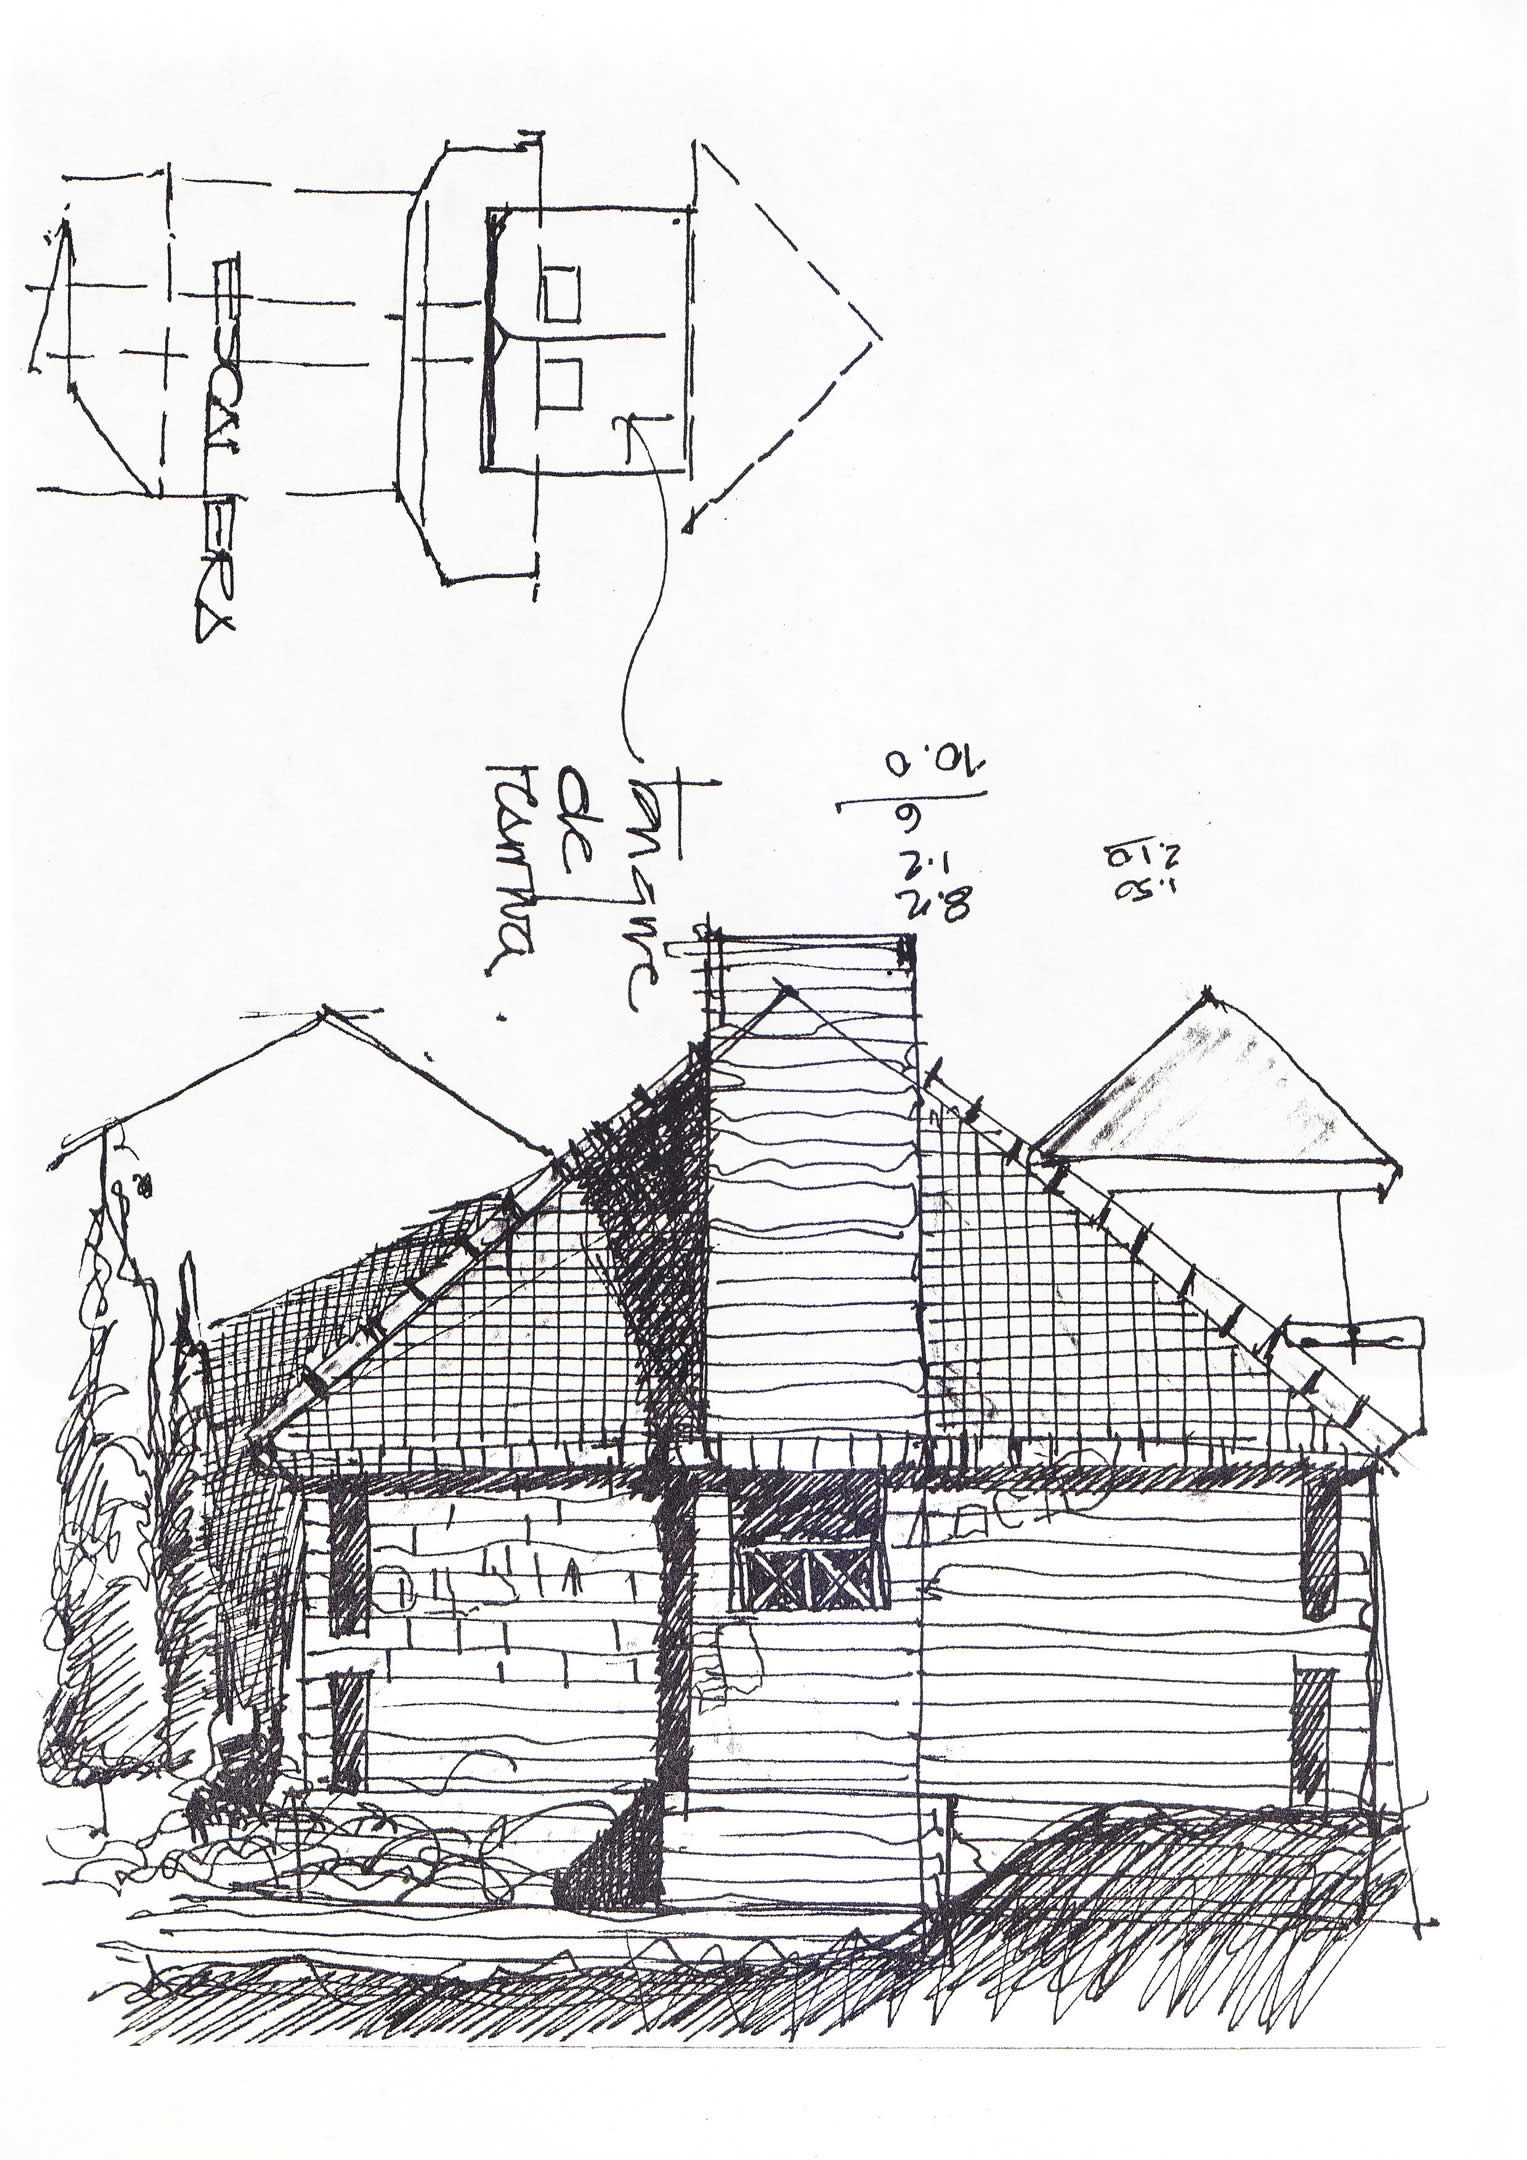 ESCALERA
Tanque
de
reserva.
1.2
6
10.0
1.50
2.10